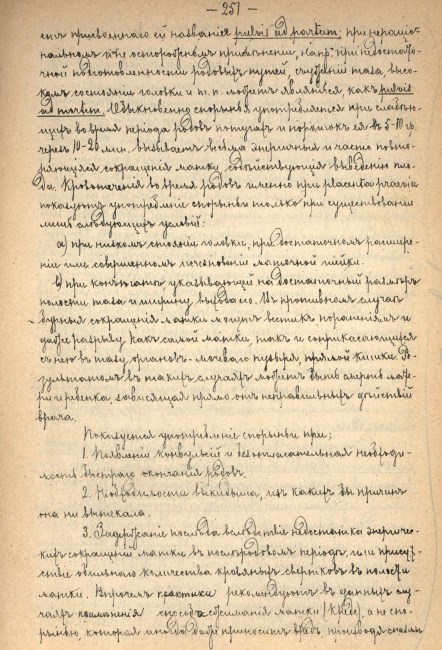 — 251 —
еня присвоеннаго ей названія pulvis ad partum; при нераціо-
нальномъ и не осторожномъ примѣненіи, напр. при недостато-
чной подготовленности родовыхъ путей, съуженіи таза, высо-
комъ состояніи головки и т. п. можетъ явиться, какъ pulvis
ad mortem. Обыкновенно спорынья употребляется при слѣдую-
щихъ во время періода родовъ и порціонъ ея въ 5-10 гр.
черезъ 10-20 мин. вызываетъ весьма энергичныя и часто повто-
ряющіяся сокращенія матки, содѣйствующія выведенію пло-
да. Кровотеченія во время родовъ именно при placenta praevia
показуютъ употребленіе спорыньи только при существованіи
лишь слѣдующихъ условій:
а) при низкомъ стояніи головки, при достаточномъ расшире-
ніи или совершенномъ исчезновеніи маточной шейки.
в) при указывающей на достаточный размѣръ
полости таза и ширину выхода его. Въ противномъ случаѣ
бурныя сокращенія матки могутъ вести къ пораненіямъ и
даже разрыву какъ самой матки, такъ и соприкасающихся
съ нею въ тазу органовъ - мочеваго пузыря, прямой кишки. Ре-
зультатомъ въ такихъ случаяхъ можетъ быть смерть мате-
ри и ребенка, зависящая прямо отъ неправильныхъ дѣйствій
врача.
Показуется употребленіе спорыньи при:
1. Появленіи конвульсій и безотлагательная необходи-
мость быстраго окончанія родовъ.
2. Необходимости выкидыша, изъ какихъ бы причинъ
она ни вытекала.
3. Задержаніе послѣда вслѣдствіе недостатка энергиче-
скихъ сокращеній матки въ послѣродовомъ періодѣ, или присут-
ствіе обильнаго количества кровяныхъ свертковъ въ полости
матки. Впрочемъ практики рекомендуютъ въ данныхъ слу-
чаяхъ примѣненія способа обжиманія матки (Креде), а не спо-
рынью, которая иногда даже приноситъ вредъ, производя спазм